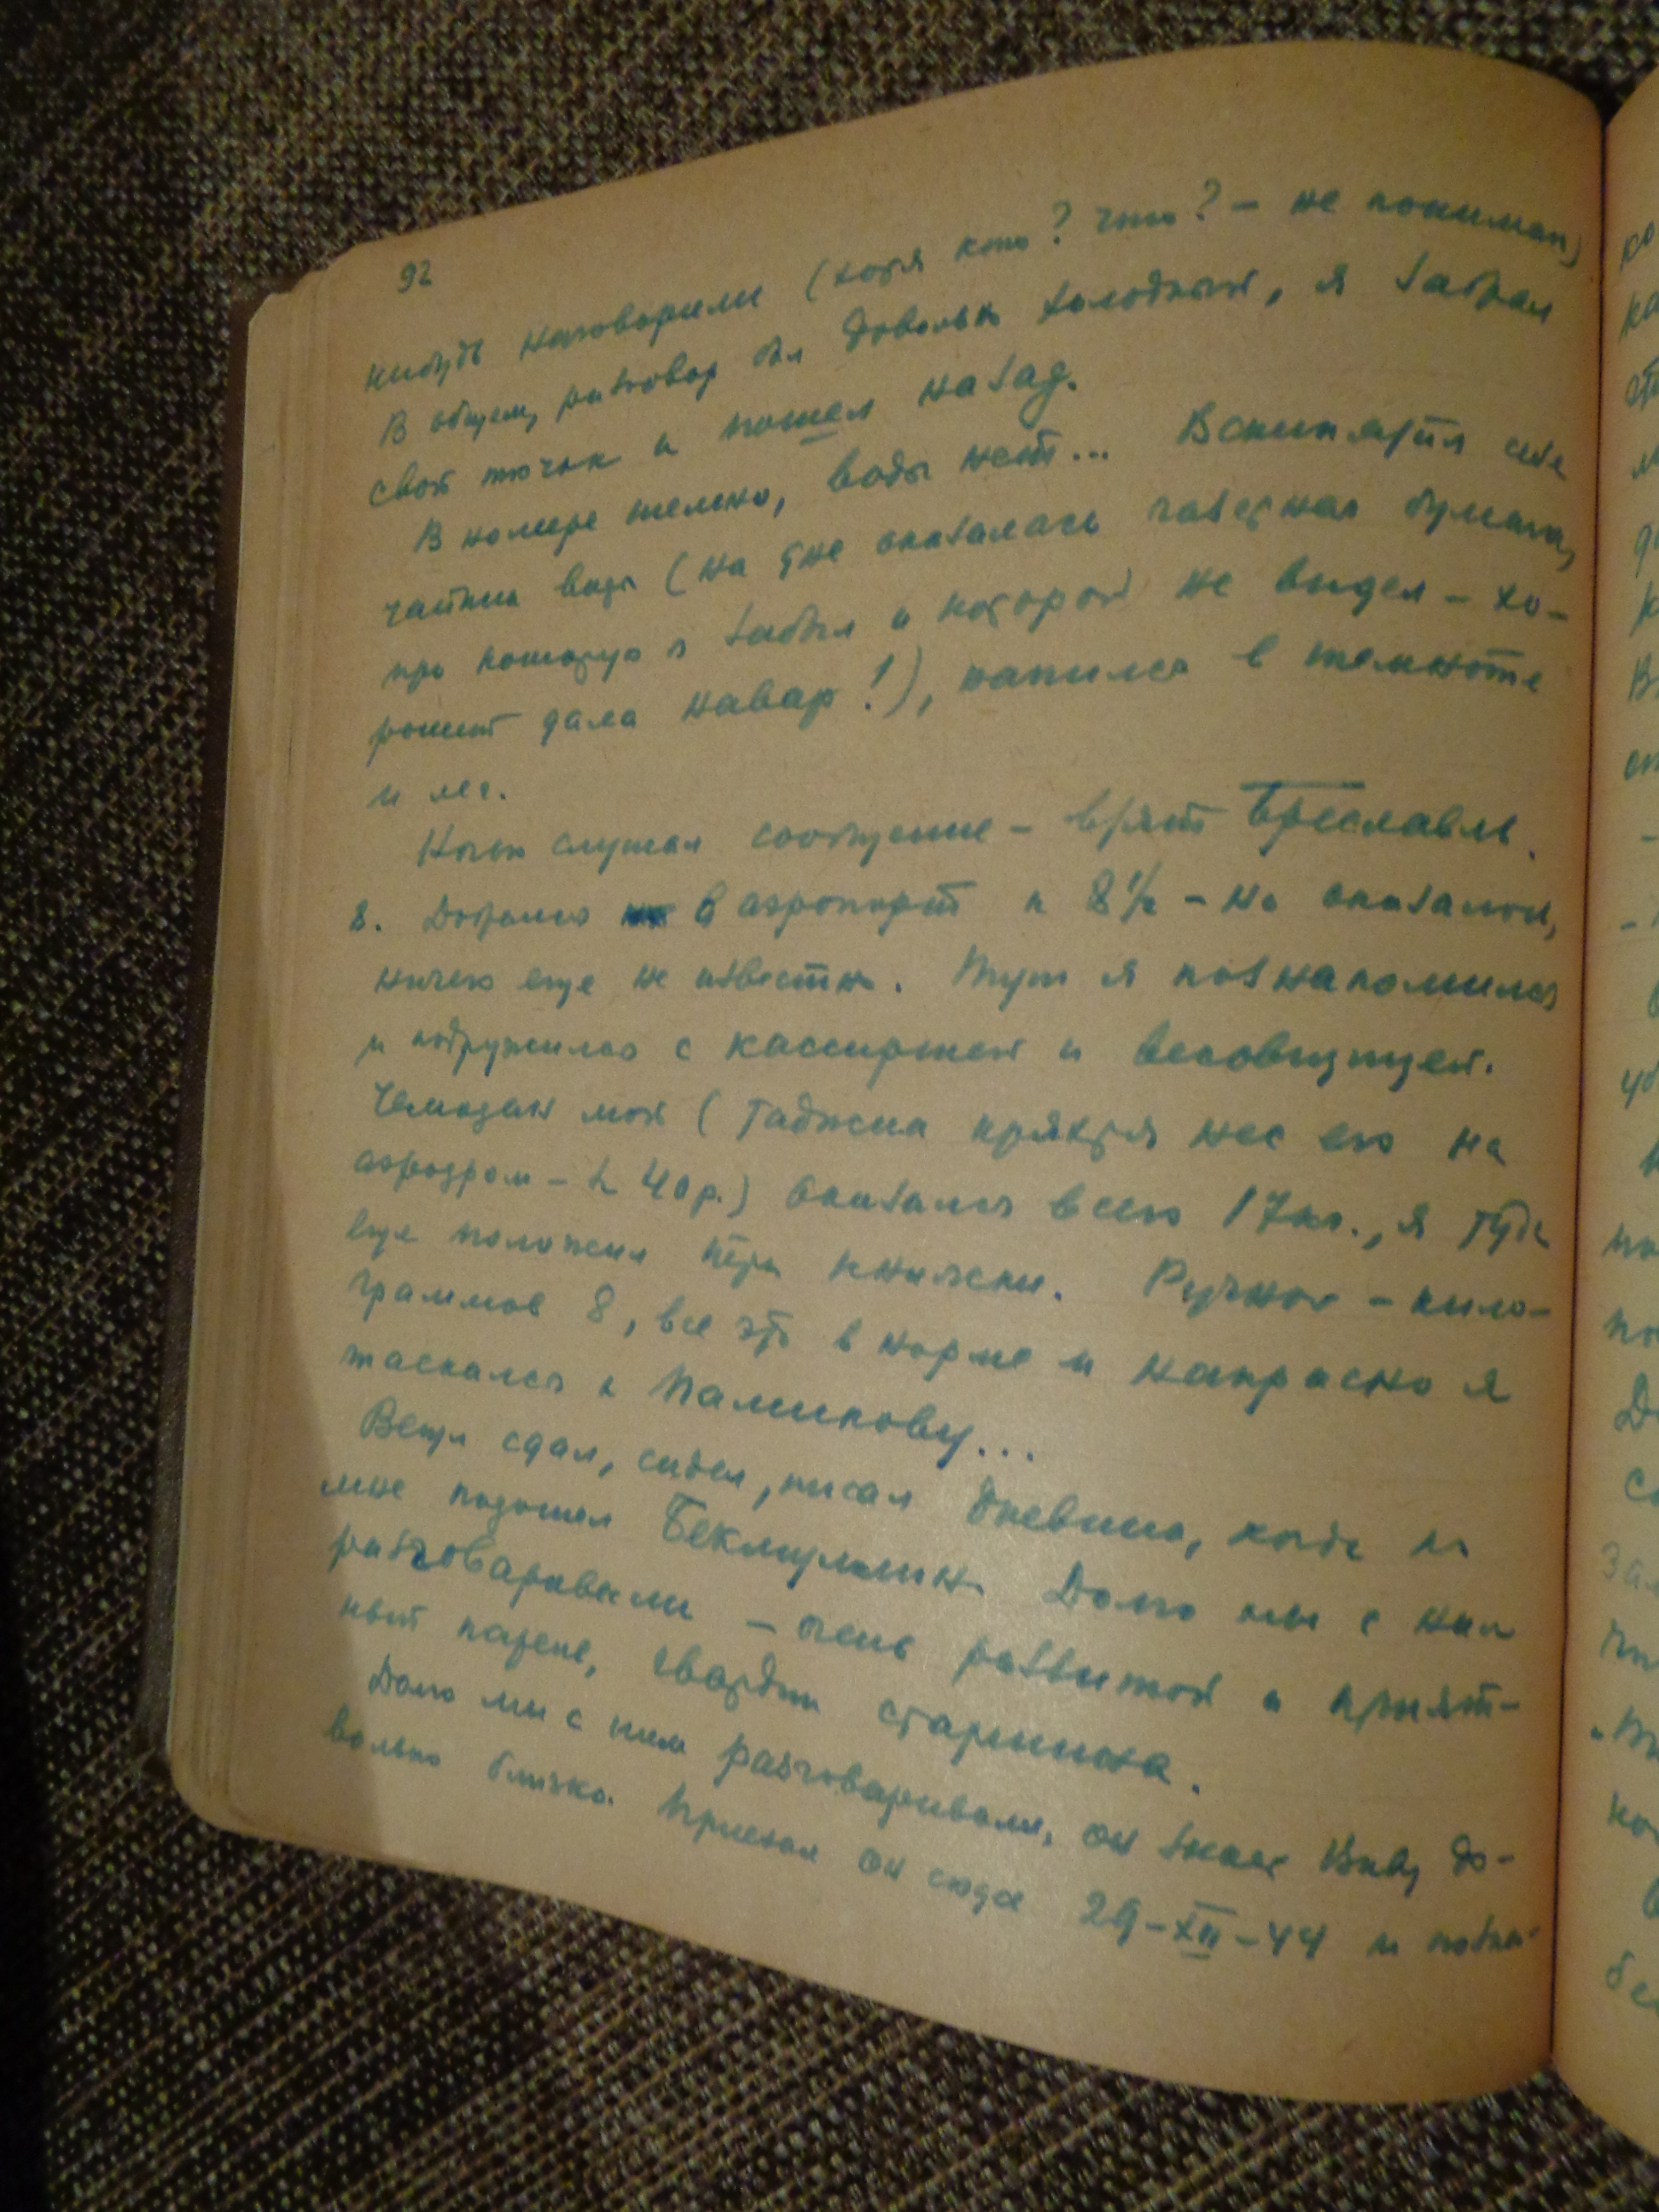 92
нибудь наговорили (хотя кто? что? – не понимаю)
В общем, разговор был довольно холодный, я забрал
свой тючок и пошел назад.
В номере темно, воды нет... Вскипятил себе
чайник воды (на дне оказалась газетная бумага,
про которую я забыл и которой не видел – хо-
роший дала навар!), напился в темноте
и лег.
Ночью слушал сообщение – взят Бреславль.
8. Добрался в аэропорт к 8½ – но оказалось,
ничего еще не известно. Тут я познакомился
и подружился с кассиршей и весовщицей.
Чемодан мой (Таджик кряхтя нес его на
аэродром – 40 р.) оказался всего 17 кг., я туда
еще положил пару книжек. Ручной – кило-
граммов 8, все это в норме и напрасно я
таскался к Паминову...
Вещи сдал, сидел, писал дневник, когда ко
мне подошел Бекмулин. Долго мы с ним
разговаривали – очень развитой и прият-
ный парень, гвардии старшина.
Долго мы с ним разговаривали, он знает Киву до-
вольно близко. Приехал он сюда 29–XII–44 и